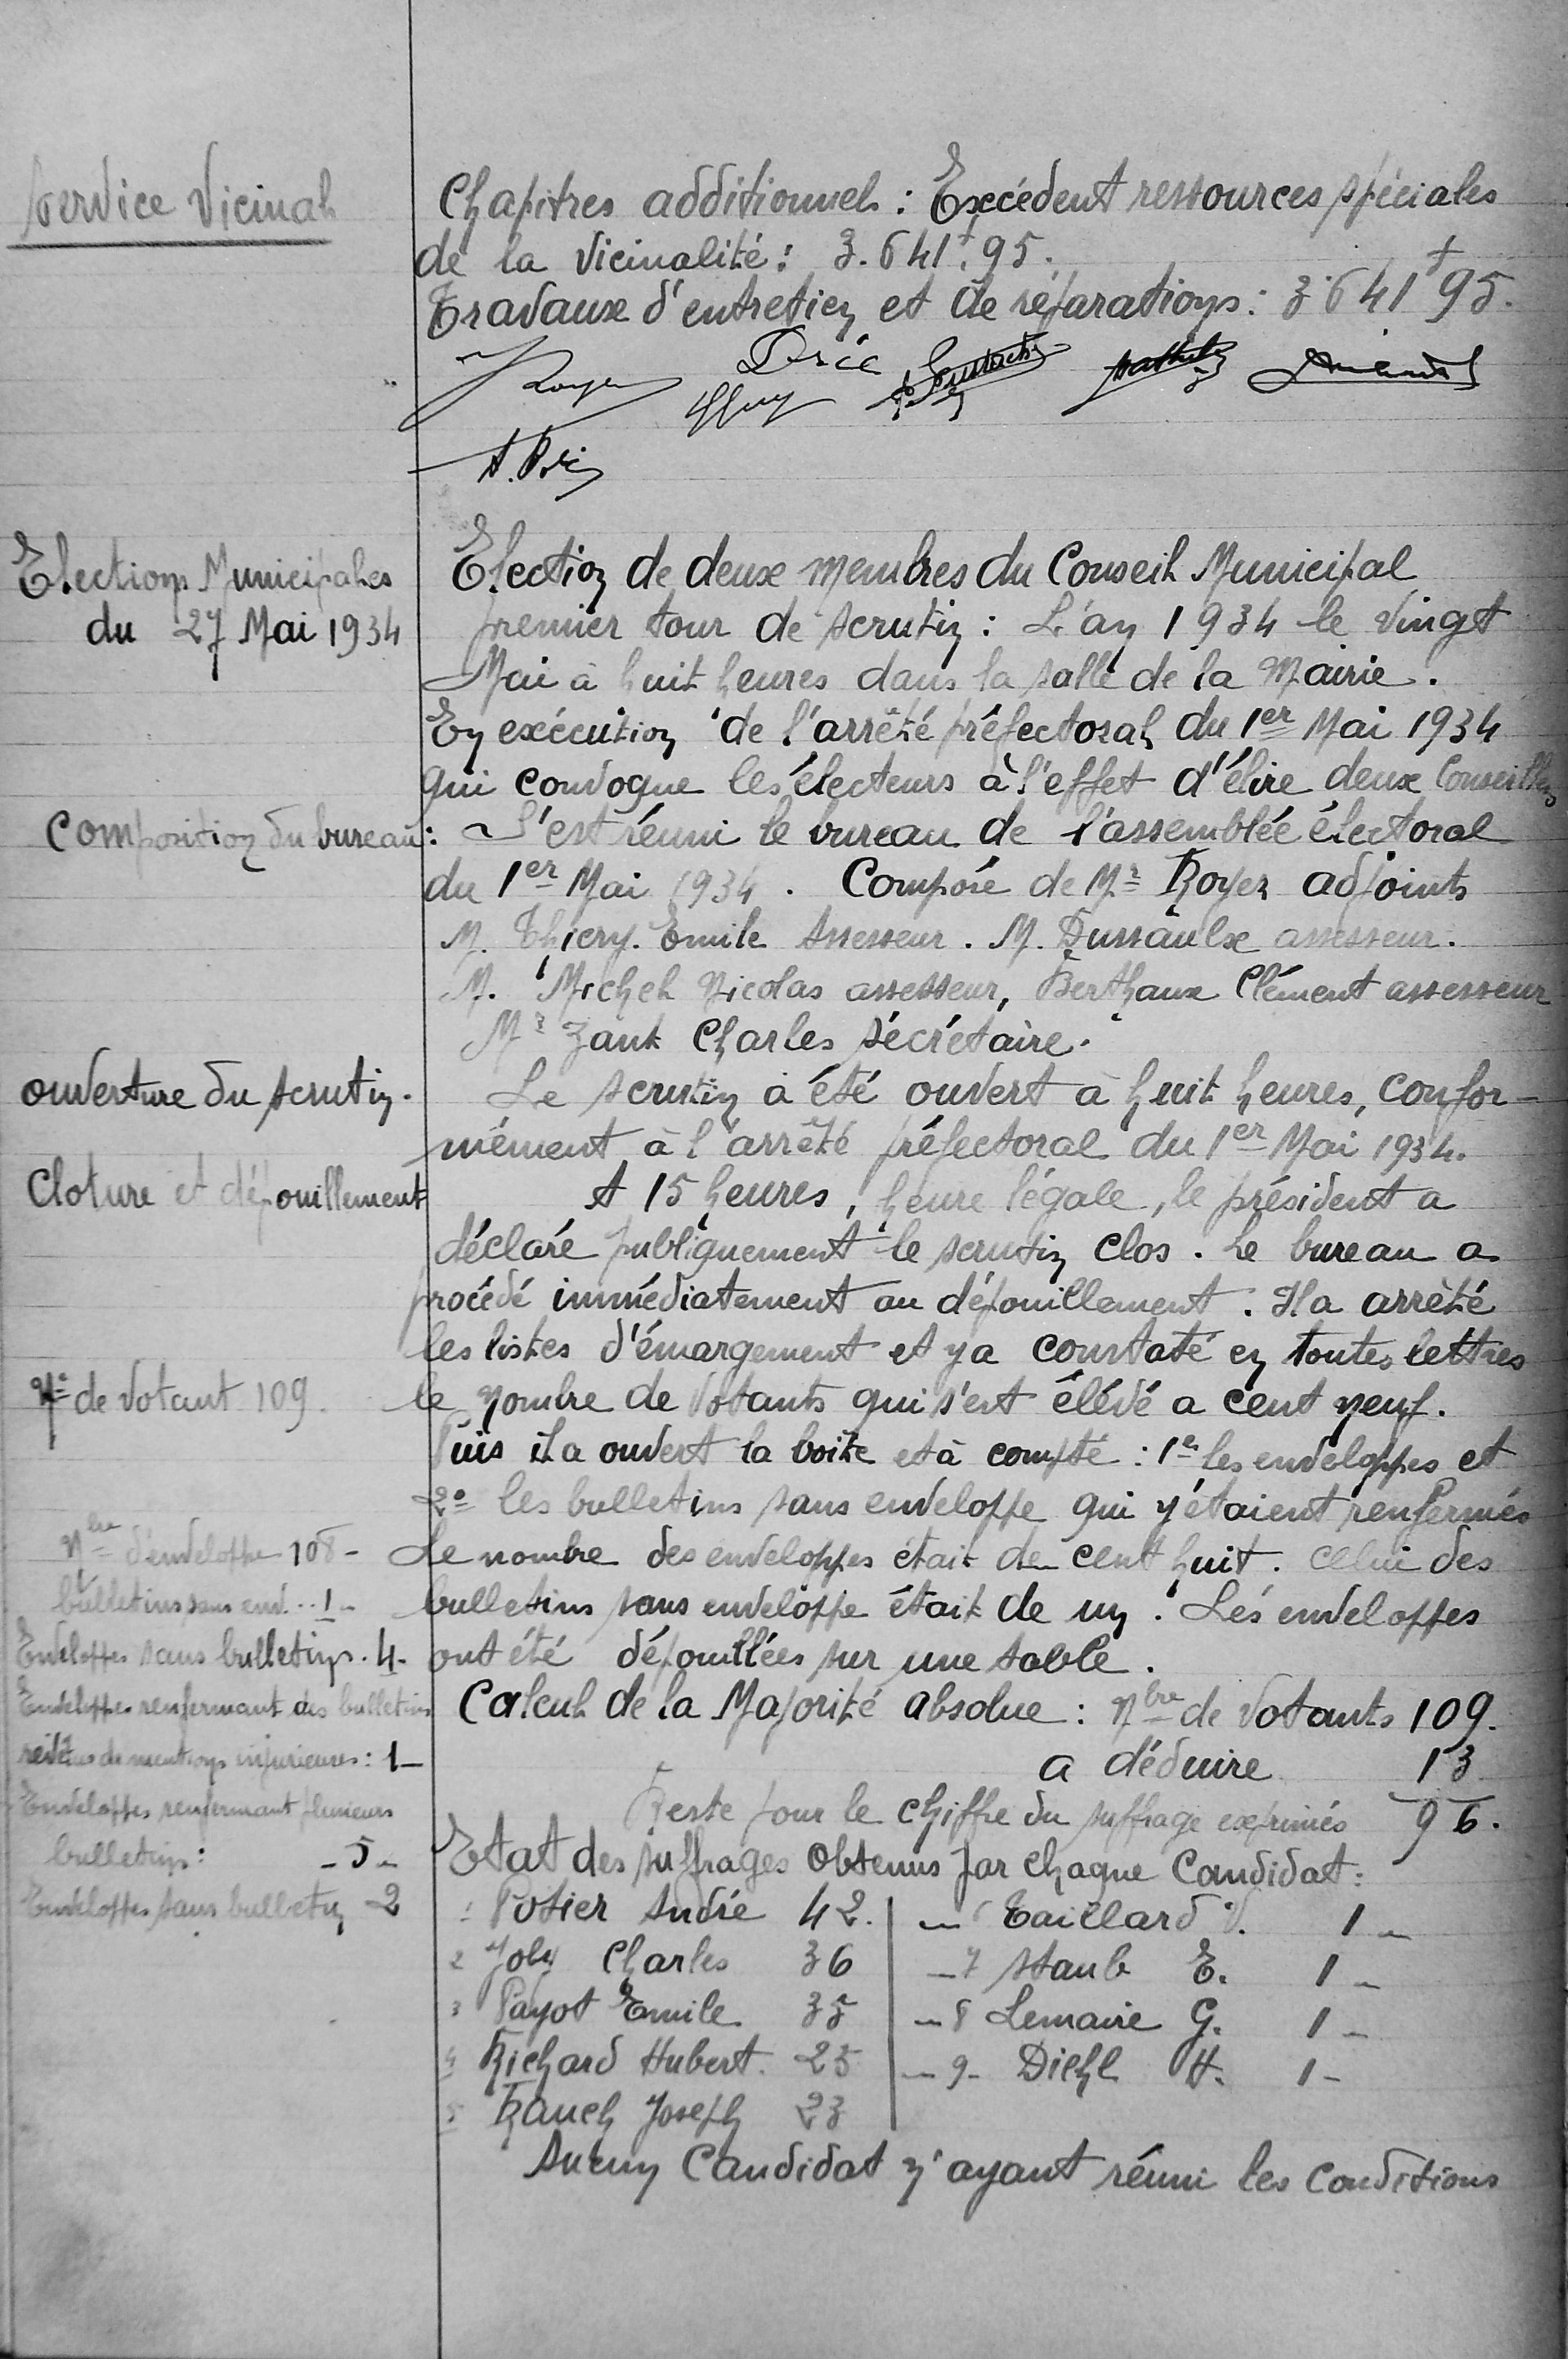 Service Vicinal
Chapitres additionnels : Excédent ressources spéciales
de la Vicinalité : 3.641f,95.
Travaux d'entretien et de réparations : 3641f95.
Royer
A. Bri
Elections Municipales
du 27 Mai 1934
Election de deux membres du Conseil Municipal
premier tour de scrutin : L'an 1934 le Vingt
Mai à huit heures dans la salle de la Mairie.
En exécution de l'arrêté préfectoral du 1er Mai 1934
qui convoque les électeurs à l'effet d'élire deux Conseillers
Composition du bureau :
S'est réuni le bureau de l'assemblée électoral
du 1er Mai 1934. Composé de Mr Royer adjoints
M. Thiery Emile Assesseur. M. Dussaulx assesseur.
M. Michel Nicolas assesseur, Berthaux Clément assesseur
Mr Zank Charles sécrétaire.
ouverture du scrutin.
Le scrutin a été ouvert à huit heures, confor-
mément à l'arrêté préfectoral du 1er Mai 1934.
Cloture et dépouillement
A 15 heures, heure légale, le président a
déclaré publiquement le scrutin clos. Le bureau a
procédé immédiatement au dépouillement. Il a arrêté
les listes d'émargement et y a constaté en toutes lettres
Nre de Votant 109.
le nombre de Votants qui s'est élévé a cent neuf.
Puis il a ouvert la boite et à compté : 1e les enveloppes et
2e les bulletins sans enveloppe qui y étaient renfermés
Nbre d'enveloppe 108 -
Le nombre des enveloppes était de cent huit. celui des
bulletins sans env. .. 1 -
bulletins sans enveloppe était de un. Les enveloppes
Enveloppes sans bulletins. 4.
ont été dépouillées sur une table.
Enveloppes renfermant des bulletins
revêtus de mentions injurieuses : 1 -
Calcul de la Majorité absolue : Nbre de Votants 109.
a déduire 13
Enveloppes renfermant plusieurs
bulletins : - 5 -
Reste pour le chiffre du suffrage exprimés 96.
Etat des suffrages obtenus par chaque Candidat :
Enveloppes sans bulletin 2
1 Potier André 42. | - 6 Taillard V. 1 -
2 Joly Charles 36 | - 7 Staub E. 1 -
3 Payot Emile 35 | - 8 Lemaire G. 1 -
4 Richard Hubert. 25 | - 9 - Diehl H. 1 -
5 Rauch Joseph 23
Aucun Candidat n'ayant réuni les conditions